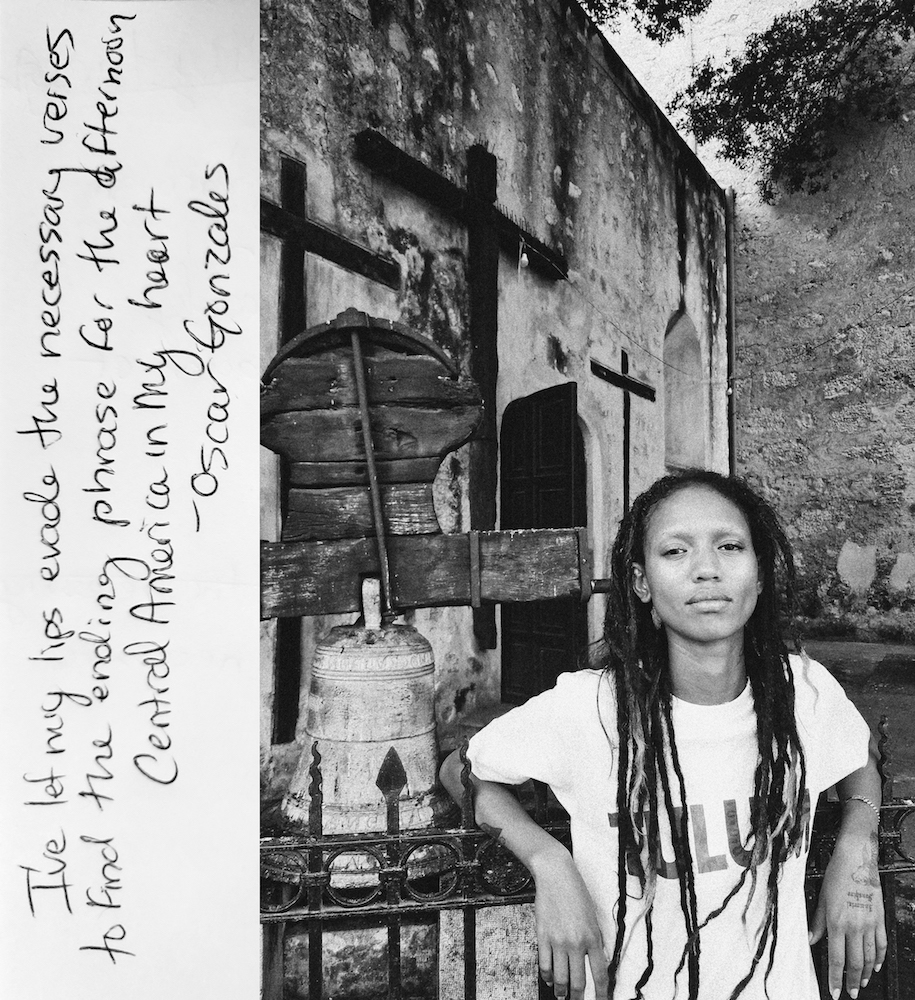 I've let my lips evade the necessary verses
to find the ending phrase for the afternoon
Central America in my heart
-Oscar Gonzales
TULUM